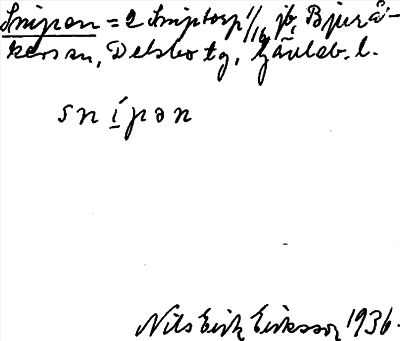 Snipen = 2 Sniptorp 1/16 jb, Bjurå-
kers sn, Delsbo tg, Gävleb. l.
sn í̱pən
Nils Eirik Eriksson 1936.